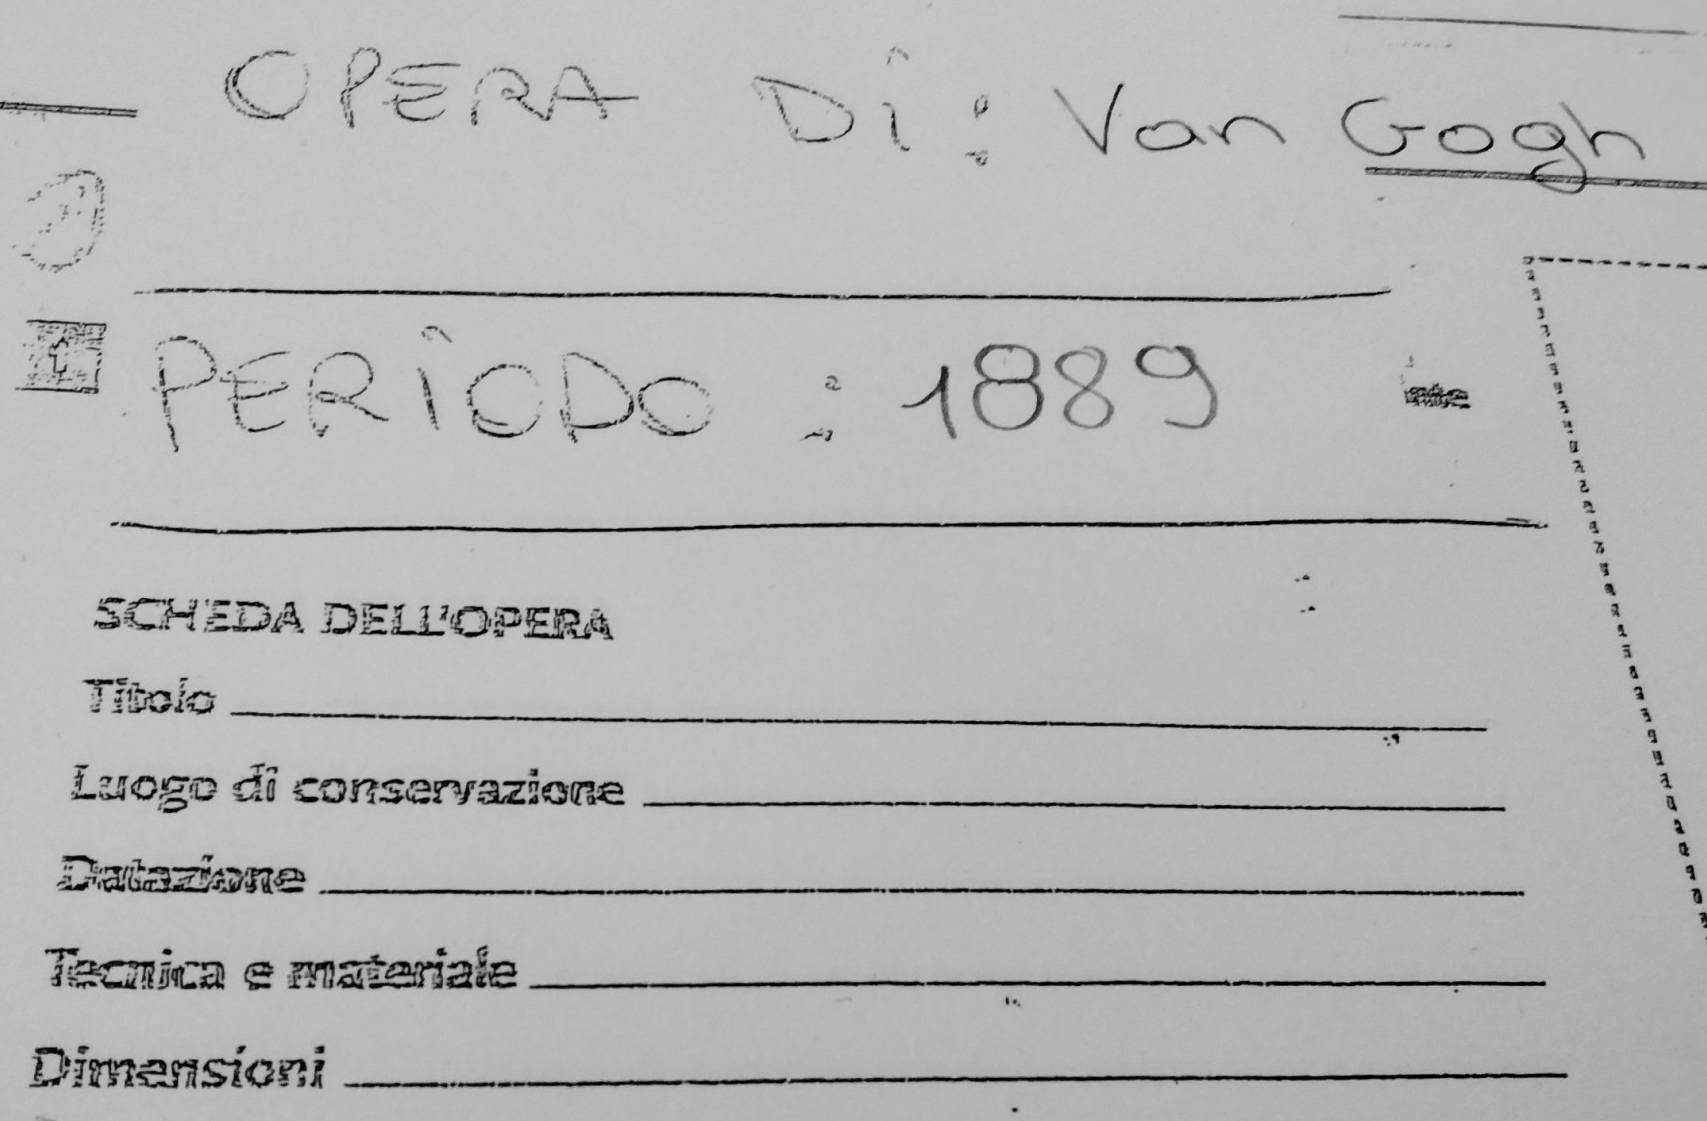 OPERA Di: Van Gogh
PERiODO: 1889
SCHEDA DELL'OPERA
Titolo
Luogo di conservazione
Datazione
Tecnica e materiale
Dimensioni